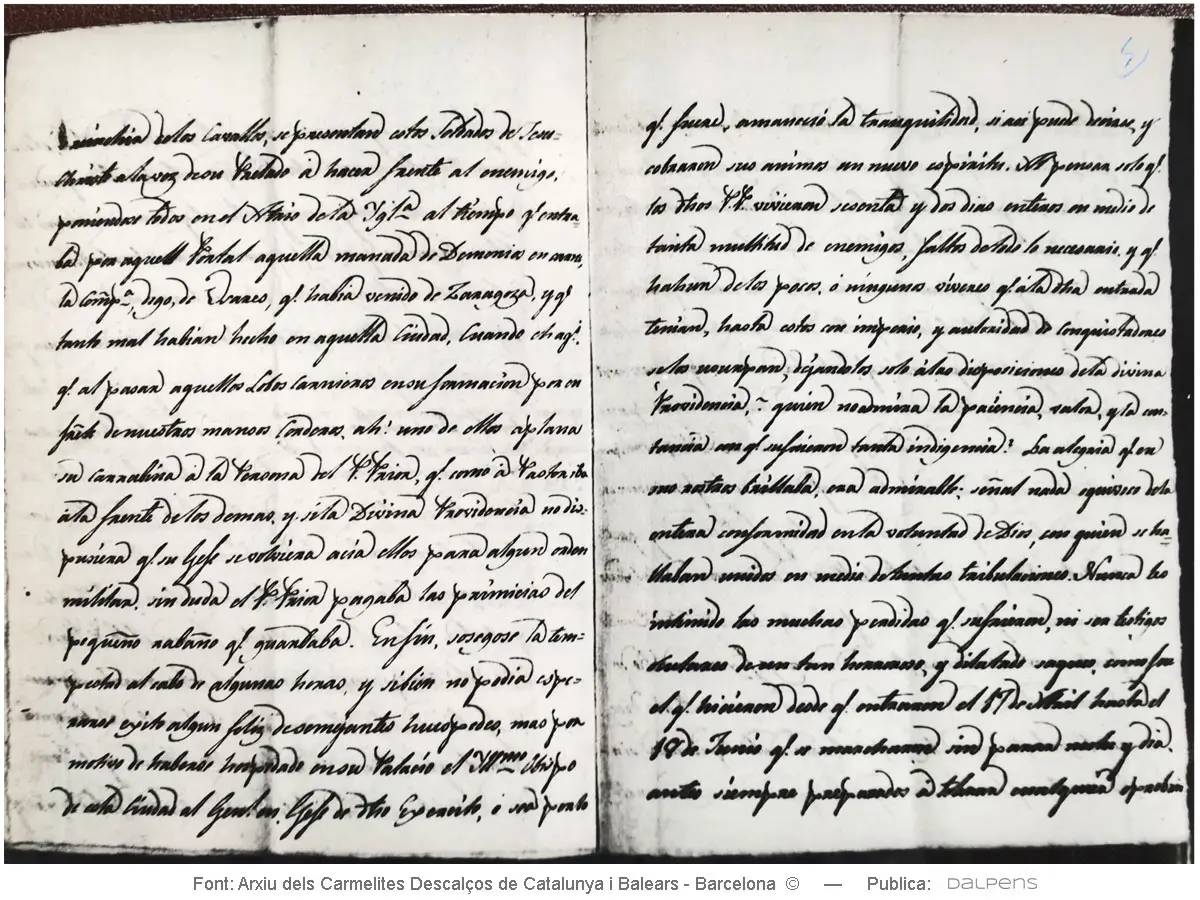 relinchia de los Cavallos, se presentan estos Soldados de Jesu-
Christo a la voz de su Prelado á hacer frente al enemigo,
poniendose todos en el Atrio de la Yglª al tiempo qᵉ entra-
ba por aquell Portal aquella manada de Demonios en carne,
la Compª, digo, de Suarez, qᵉ habia venido de Zaragoza, y qᵉ
tanto mal habian hecho en aquella Ciudad. Cuando he aqⁱ,
qᵉ al pasar aquellos Lobos Carniceros en su formacion por en
frente de nuestros mansos Corderos, ah! uno de ellos aplana
su carrabina à la Persona del P. Prior, qᵉ como à Pastor iba
á la frente de los demas, y si la Divina Providencia no dis-
pusiera qᵉ su Gefe se volviera acia ellos para algun orden
militar, sin duda el P. Prior pagaba las primicias del
pequeño rabaño qᵉ guardaba. En fin, sosegose la tem-
pestad al cabo de algunas horas, y si bien no podia espe-
rarse exito algun feliz de semejantes huespedes, mas por
motivo de haberse hospedado en su Palacio el Yllmo Obispo
de esta Ciudad al Genl. en Gefe de dho Exercito, ó sea por lo
qᵉ fuere, amaneció la tranquilidad, si asi puede decirse, y
cobraron sus animos un nuevo espiritu. Al pensar solo qᵉ
los dhos P.P. vivieron sesenta y dos dias enteros en medio de
tanta multitud de enemigos, faltos de todo lo necesario, y qᵉ
habun de los pocos, ó ningunos víveres qᵉ á la dha entrada
tenian, hasta estos con imperio, y autoridad de conquistadores
se los usurpan, dejandolos solo á las disposiciones de la divina
Providencia, quien no admira la paciencia, valor, y la cons-
tancia con qᵉ sufrieron tanta indigencia? La alegria qᵉ en
sus rostros brillaba, era admirable; señal nada equivoca de la
entera conformidad en la voluntad de Dios, con quien se ha-
llaban unidos en medio de tantas tribulaciones. Nunca les
intimido las muchas perdidas qᵉ sufrieron, ni ser testigos
oculares de un tan horroroso, y dilatado saqueo, como fue
el qᵉ hicieron desde qᵉ entraron el 17 de Abril hasta el
18 de Junio qᵉ se marcharon sin parar noche y dia,
antes siempre preparados á tolerar cualquiera oprobio
Font: Arxiu dels Carmelites Descalços de Catalunya i Balears - Barcelona © — Publica: DALPENS